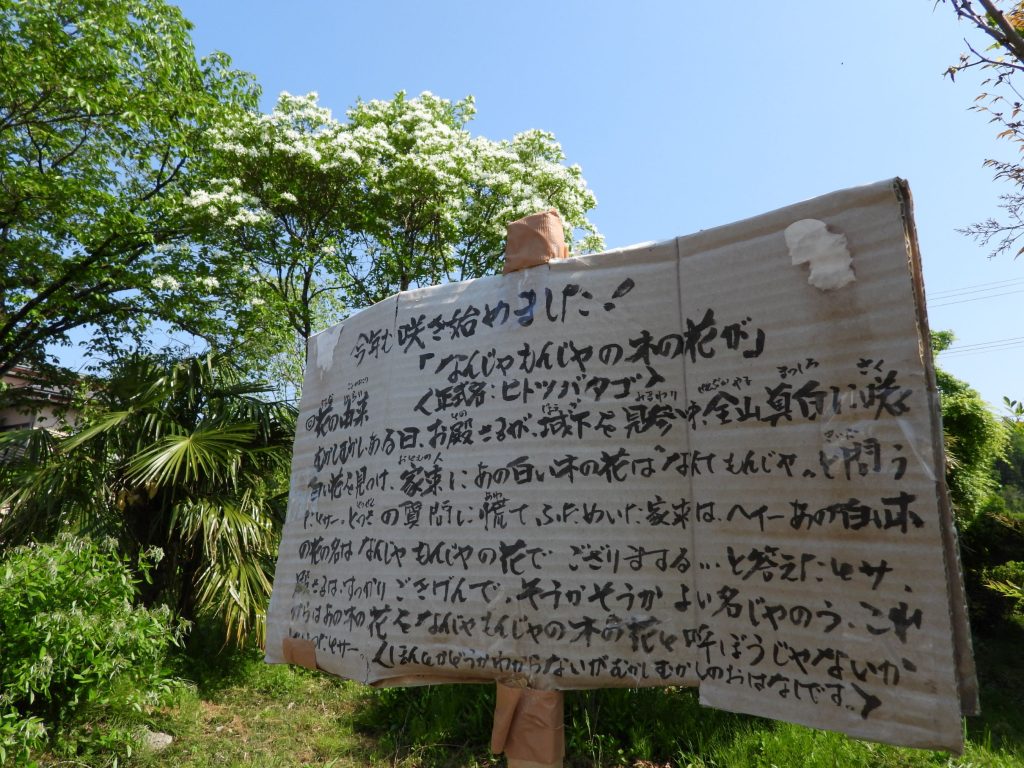 今年も咲き始めました!
「なんじゃもんじゃの木の花が」
◎花の由来 <正式名:ヒトツバタゴ>
むかしむかし、ある日、お殿さるが、城下を見参中、全山真白に咲く
白い花を見つけ、家来に、あの白い木の花は"なんてもんじゃ"と問う
たとサ。とっさの質問に慌てふためいた家来は、ヘイーあの白い木
の花の名はなんじゃもんじゃの花でござりまする...と答えたとサ、
殿さるは、すっかりごきげんで、そうかそうかよい名じゃのう、これ
からはあの木の花をなんじゃもんじゃの木の花と呼ぼうじゃないか
といったとサ。<ほんとかどうかわからないがむかしむかしのおはなしです。>